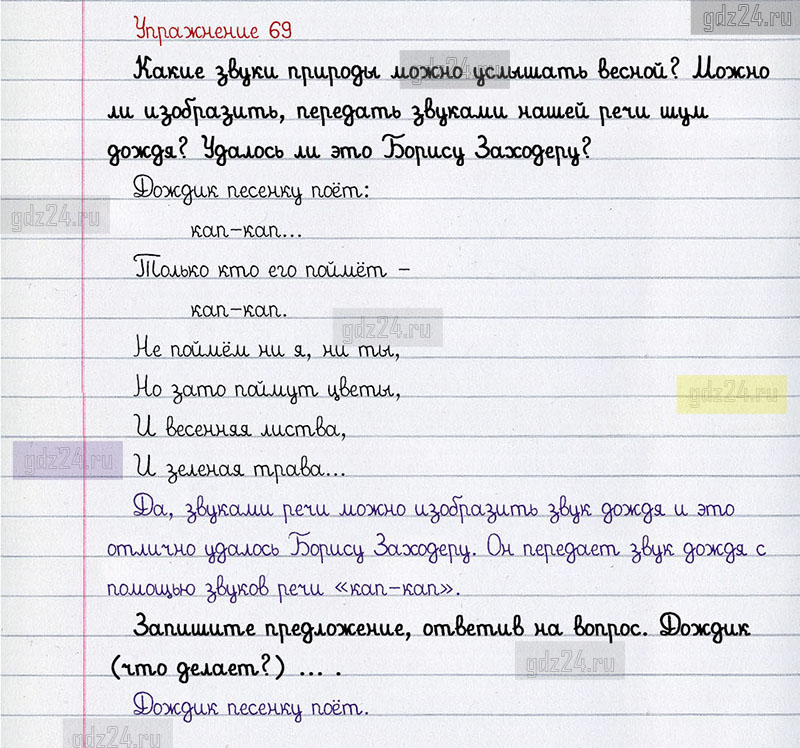 gdz24.ru
Упражнение 69
Какие звуки природы можно услышать весной? Можно
gdz24.ru
ли изобразить, передать звуками нашей речи шум
дождя? Удалось ли это Борису Заходеру?
Дождик песенку поёт:
gdz24.ru
кап-кап...
Только кто его поймёт –
кап-кап.
gdz24.ru
Не поймём ни я, ни ты,
Но зато поймут цветы,
gdz24.ru
И весенняя листва,
gdz24.ru
И зеленая трава...
Да, звуками речи можно изобразить звук дождя и это
отлично удалось Борису Заходеру. Он передает звук дождя с
помощью звуков речи «кап-кап».
Запишите предложение, ответив на вопрос. Дождик
(что делает?) ... .
gdz24.ru
Дождик песенку поёт.
gdz24.ru